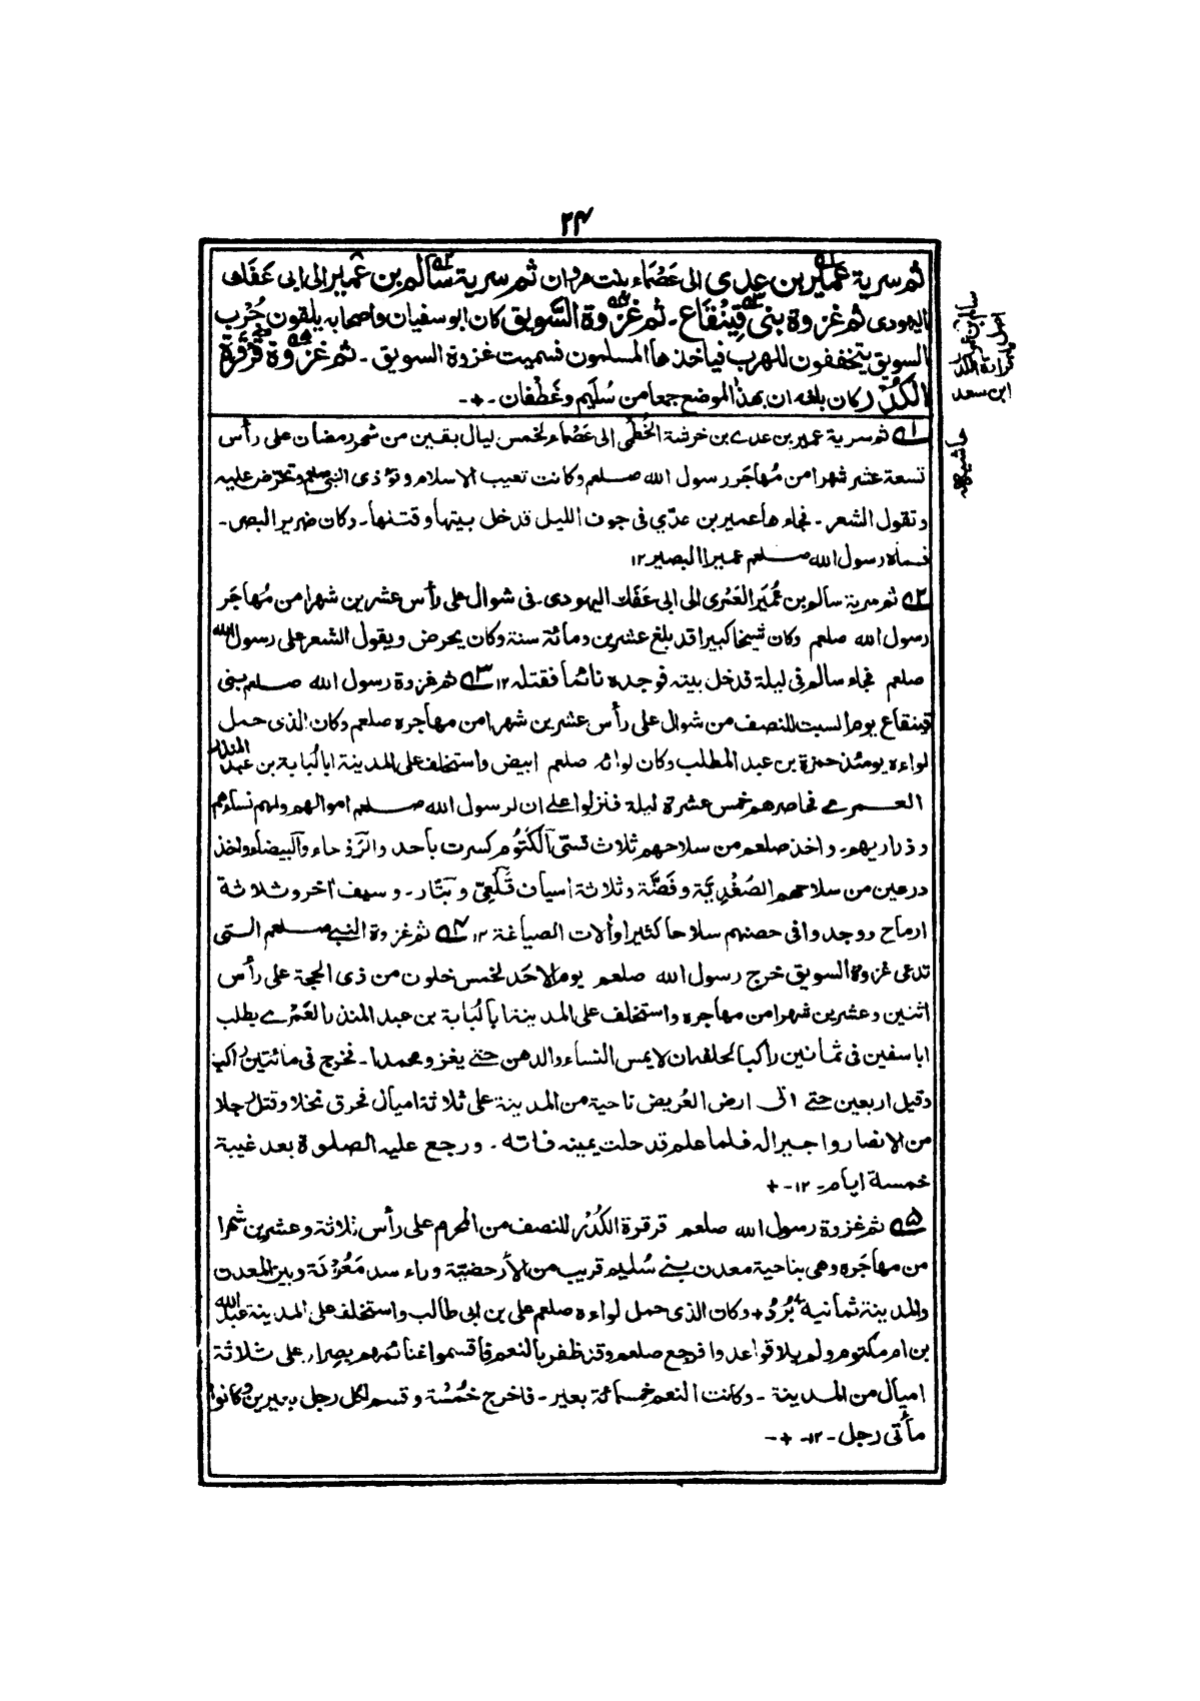 ۲۴
ثم سرية عمير بن عدى الى عَصْمَاء بنت مروان ثم سرية سالم بن عُمير الى ابى عَفَك
اليهودى ثم غزوة بنى قينُقَاع ـ ثم غزوة السَّوِيق كان ابو سفيان واصحابه يلقون جُرُب
السويق يتخففون للهرب فياخذها المسلمون فسميت غزوة السويق ـ ثم غزوة قَرْقَرة
الكُدْر كان بلغه ان بهذا الموضع جمعا من سُلَيم وغَطْفان ـ+ـ
۱ ثم سرية عمير بن عدے بن خرشة الخُطَمى الى عَصْمَاء لخمس ليال بقين من شهر رمضان على رأس
تسعة عشر شهرا من مُهاجَر رسول الله صلعم وكانت تعيب الاسلام وتؤذى النبى صلعم وتحرّض عليه
وتقول الشعر ـ فجاءها عمير بن عدّي فى جوف الليل فدخل بيتها وقتلها ـ وكان ضرير البصر ـ
فسماه رسول الله صلعم عميرا البصير ۱۲
۲ ثم سرية سالم بن عُمَير العَمْرى الى ابى عَفَك اليهودى ـ فى شوال على رأس عشرين شهرا من مُهاجَر
رسول الله صلعم وكان شيخا كبيرا قد بلغ عشرين ومائة سنة وكان يحرض ويقول الشعر على رسول الله
صلعم فجاء سالم فى ليلة فدخل بيته فوجده نائما فقتله ۱۲ ۳ ثم غزوة رسول الله صلعم بنى
قينقاع يوم السبت للنصف من شوال على رأس عشرين شهرا من مهاجره صلعم وكان الذى حمل
لواءه يومئذ حمزة بن عبد المطلب وكان لوائه صلعم ابيض واستخلف على المدينة ابا لُبَابة بن عبد المنذر
العمرے فحاصرهم خمس عشرة ليلة فنزلوا على ان لرسول الله صلعم اموالهم ولهم نساءهم
وذراريهم ـ واخذ صلعم من سلاحهم ثلاث قسىّ الكَتُوم كسرت بأحد والرَّوْحاء والبيضاء واخذ
درعين من سلاحهم الصُغْدِيّة وفَضّة وثلاثة اسياف قَلَعِىّ وبتّار ـ وسيف اخر وثلاثة
ارماح ووجدوا فى حصنهم سلاحا كثيرا وألات الصياغة ۱۲ ۴ ثم غزوة النبے صلعم التى
تدعى غزوة السويق خرج رسول الله صلعم يوم الاحد لخمس خلون من ذى الحجة على رأس
اثنين وعشرين شهرا من مهاجره واستخلف على المدينة ابا لُبَابة بن عبد المنذر العَمْرے يطلب
ابا سفين فى ثمانين راكبا لحلفه ان لا يمس النساء والدهن حتے يغزو محمدا ـ فخرج فى مائتين راكب
وقيل اربعين حتے اتى ارض العُريض ناحية من المدينة على ثلاثة اميال فحرق نخلا وقتل رجلا
من الانصار واجيرا له فلما علم قد حلت يمينه فاته ـ ورجع عليه الصلوة بعد غيبة
خمسة ايام ـ ۱۲ ـ+
۵ ثم غزوة رسول الله صلعم قرقرة الكُدْر للنصف من المحرم على رأس ثلاثة وعشرين شهرا
من مهاجَره وهى بناحية معدن بنے سُليم قريب من الأرحضيّة وراء سد مَعُوْنَة وبين المعدن
والمدينة ثمانية بُرُد+ وكان الذى حمل لواءه صلعم على بن ابى طالب واستخلف على المدينة عبد الله
بن ام مكتوم ولم يلاقوا عدوا فرجع صلعم وقد ظفر بالنعم فاقسموا غنائمهم بصرار على ثلاثة
اميال من المدينة ـ وكانت النعم خمسمائة بعير ـ فاخرج خُمُسَه وقسم لكل رجل بعيرين وكانوا
مأتى رجل ـ ۱۲ ـ+ـ
ابن سعد
حاشيه